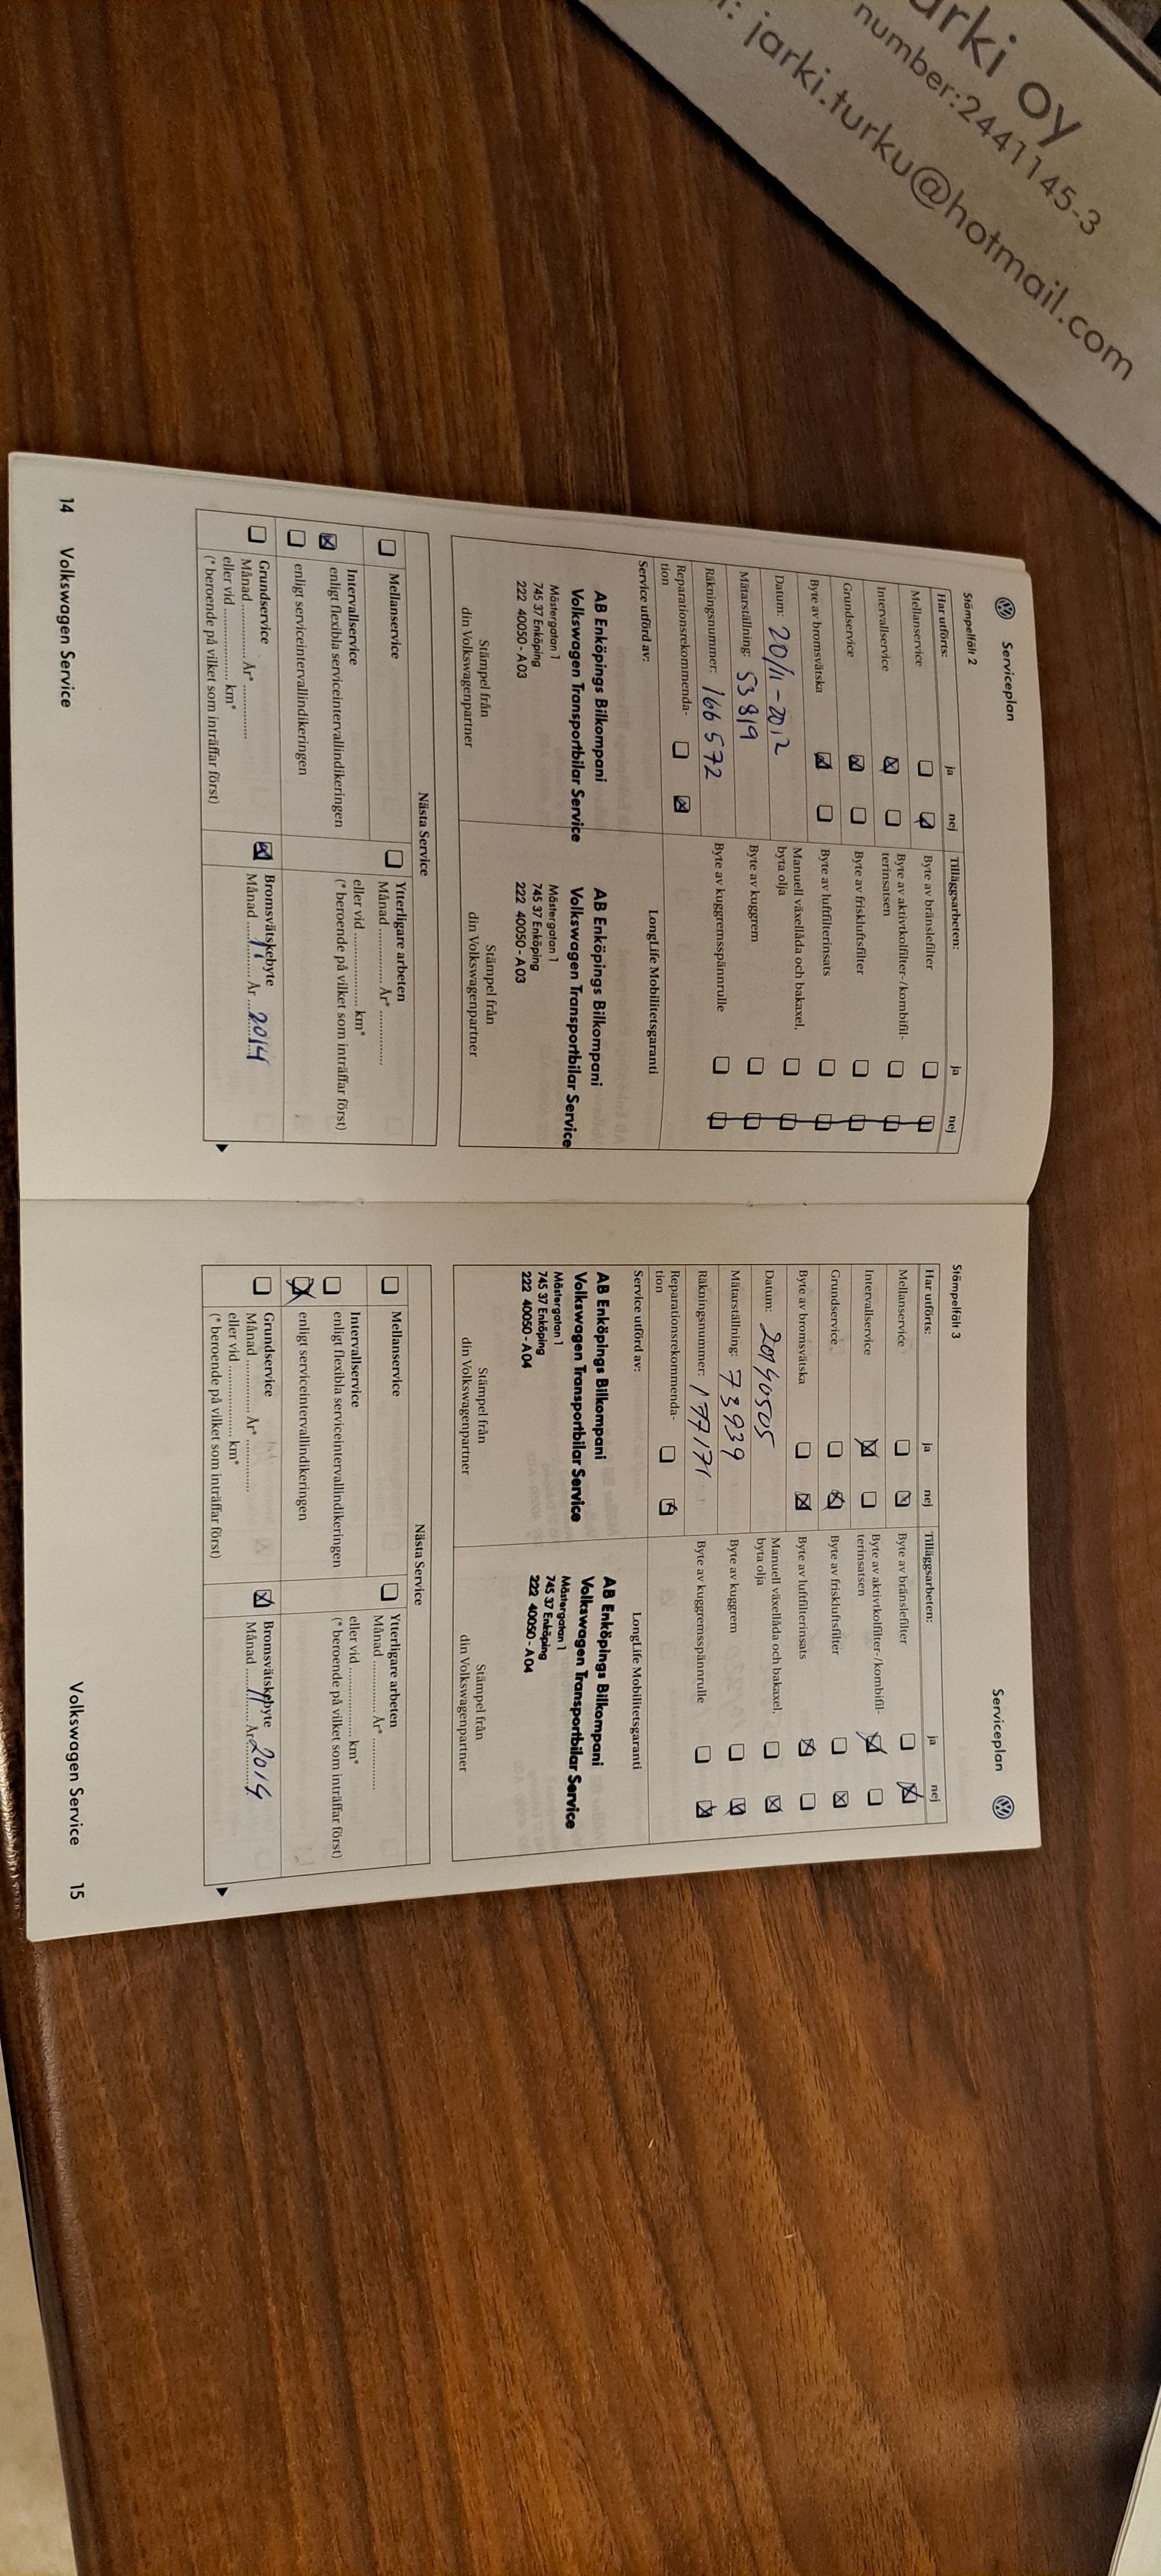 urki Oy
number:2441145-3
l: jarki.turku@hotmail.com
Serviceplan
Stämpelfält 2
Har utförts: ja nej
Mellanservice
Intervallservice
Grundservice
Byte av bromsvätska
Datum: 20/11-2012
Mätarställning: 53819
Räkningsnummer: 166572
Reparationsrekommenda-
tion
Tilläggsarbeten: ja nej
Byte av bränslefilter
Byte av aktivtkolfilter-/kombifil-
terinsatsen
Byte av friskluftsfilter
Byte av luftfilterinsats
Manuell växellåda och bakaxel,
byta olja
Byte av kuggrem
Byte av kuggremsspännrulle
Service utförd av:
AB Enköpings Bilkompani
Volkswagen Transportbilar Service
Mästergatan 1
745 37 Enköping
222 40050 - A03
Stämpel från
din Volkswagenpartner
LongLife Mobilitetsgaranti
AB Enköpings Bilkompani
Volkswagen Transportbilar Service
Mästergatan 1
745 37 Enköping
222 40050 - A03
Stämpel från
din Volkswagenpartner
Nästa Service
Mellanservice
Intervallservice
enligt flexibla serviceintervallindikeringen
enligt serviceintervallindikeringen
Grundservice
Månad ............. År* .............
eller vid .................. km*
(* beroende på vilket som inträffar först)
Ytterligare arbeten
Månad ............. År* .............
eller vid .................. km*
(* beroende på vilket som inträffar först)
Bromsvätskebyte
Månad 11 År 2014
14 Volkswagen Service
Serviceplan
Stämpelfält 3
Har utförts: ja nej
Mellanservice
Intervallservice
Grundservice
Byte av bromsvätska
Datum: 20140505
Mätarställning: 73939
Räkningsnummer: 177171
Reparationsrekommenda-
tion
Tilläggsarbeten: ja nej
Byte av bränslefilter
Byte av aktivtkolfilter-/kombifil-
terinsatsen
Byte av friskluftsfilter
Byte av luftfilterinsats
Manuell växellåda och bakaxel,
byta olja
Byte av kuggrem
Byte av kuggremsspännrulle
Service utförd av:
AB Enköpings Bilkompani
Volkswagen Transportbilar Service
Mästergatan 1
745 37 Enköping
222 40050 - A04
Stämpel från
din Volkswagenpartner
LongLife Mobilitetsgaranti
AB Enköpings Bilkompani
Volkswagen Transportbilar Service
Mästergatan 1
745 37 Enköping
222 40050 - A04
Stämpel från
din Volkswagenpartner
Nästa Service
Mellanservice
Intervallservice
enligt flexibla serviceintervallindikeringen
enligt serviceintervallindikeringen
Grundservice
Månad ............. År* .............
eller vid .................. km*
(* beroende på vilket som inträffar först)
Ytterligare arbeten
Månad ............. År* .............
eller vid .................. km*
(* beroende på vilket som inträffar först)
Bromsvätskebyte
Månad 11 År 2014
Volkswagen Service 15